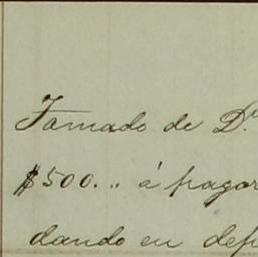 Tomado de D.
$500.,, á pagar
dando en dep